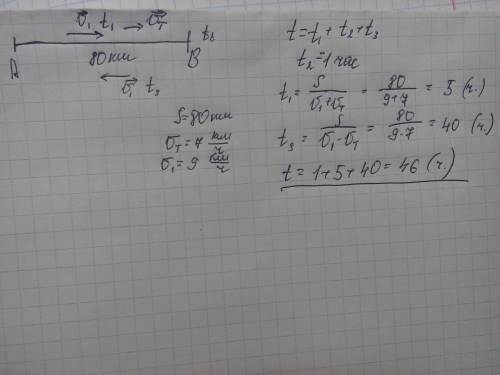 v⃗₁ t₁ → v⃗т t₂
A 80 км B
v⃗₁ t₃
S=80 км
vт = 7 км/ч
v₁ = 9 км/ч
t = t₁ + t₂ + t₃
t₂ = 1 час
t₁ = S/(v₁+vт) = 80/(9+7) = 5 (ч.)
t₃ = S/(v₁-vт) = 80/(9-7) = 40 (ч.)
t = 1+5+40 = 46 (ч.)